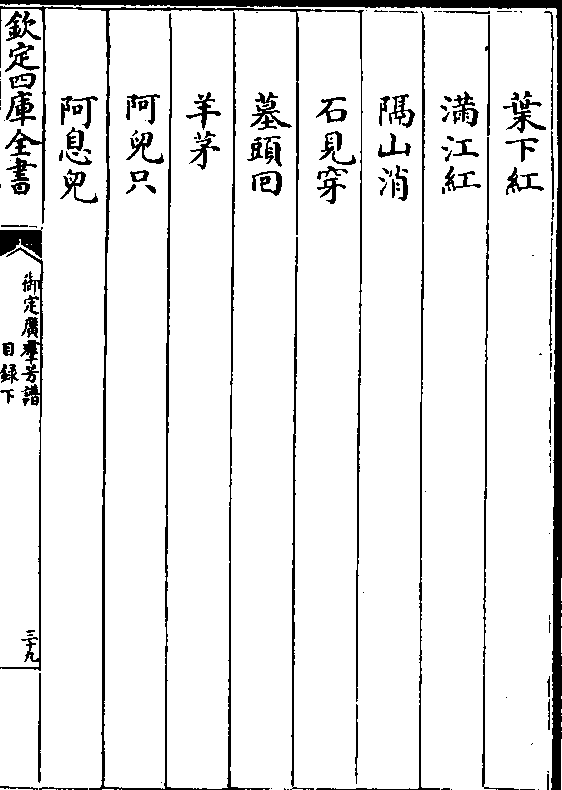 葉下紅
滿江紅
隔山消
石見穿
墓頭回
羊茅
阿兒只
阿息兒
欽定四庫全書
御定廣羣芳譜
目録下
三十九